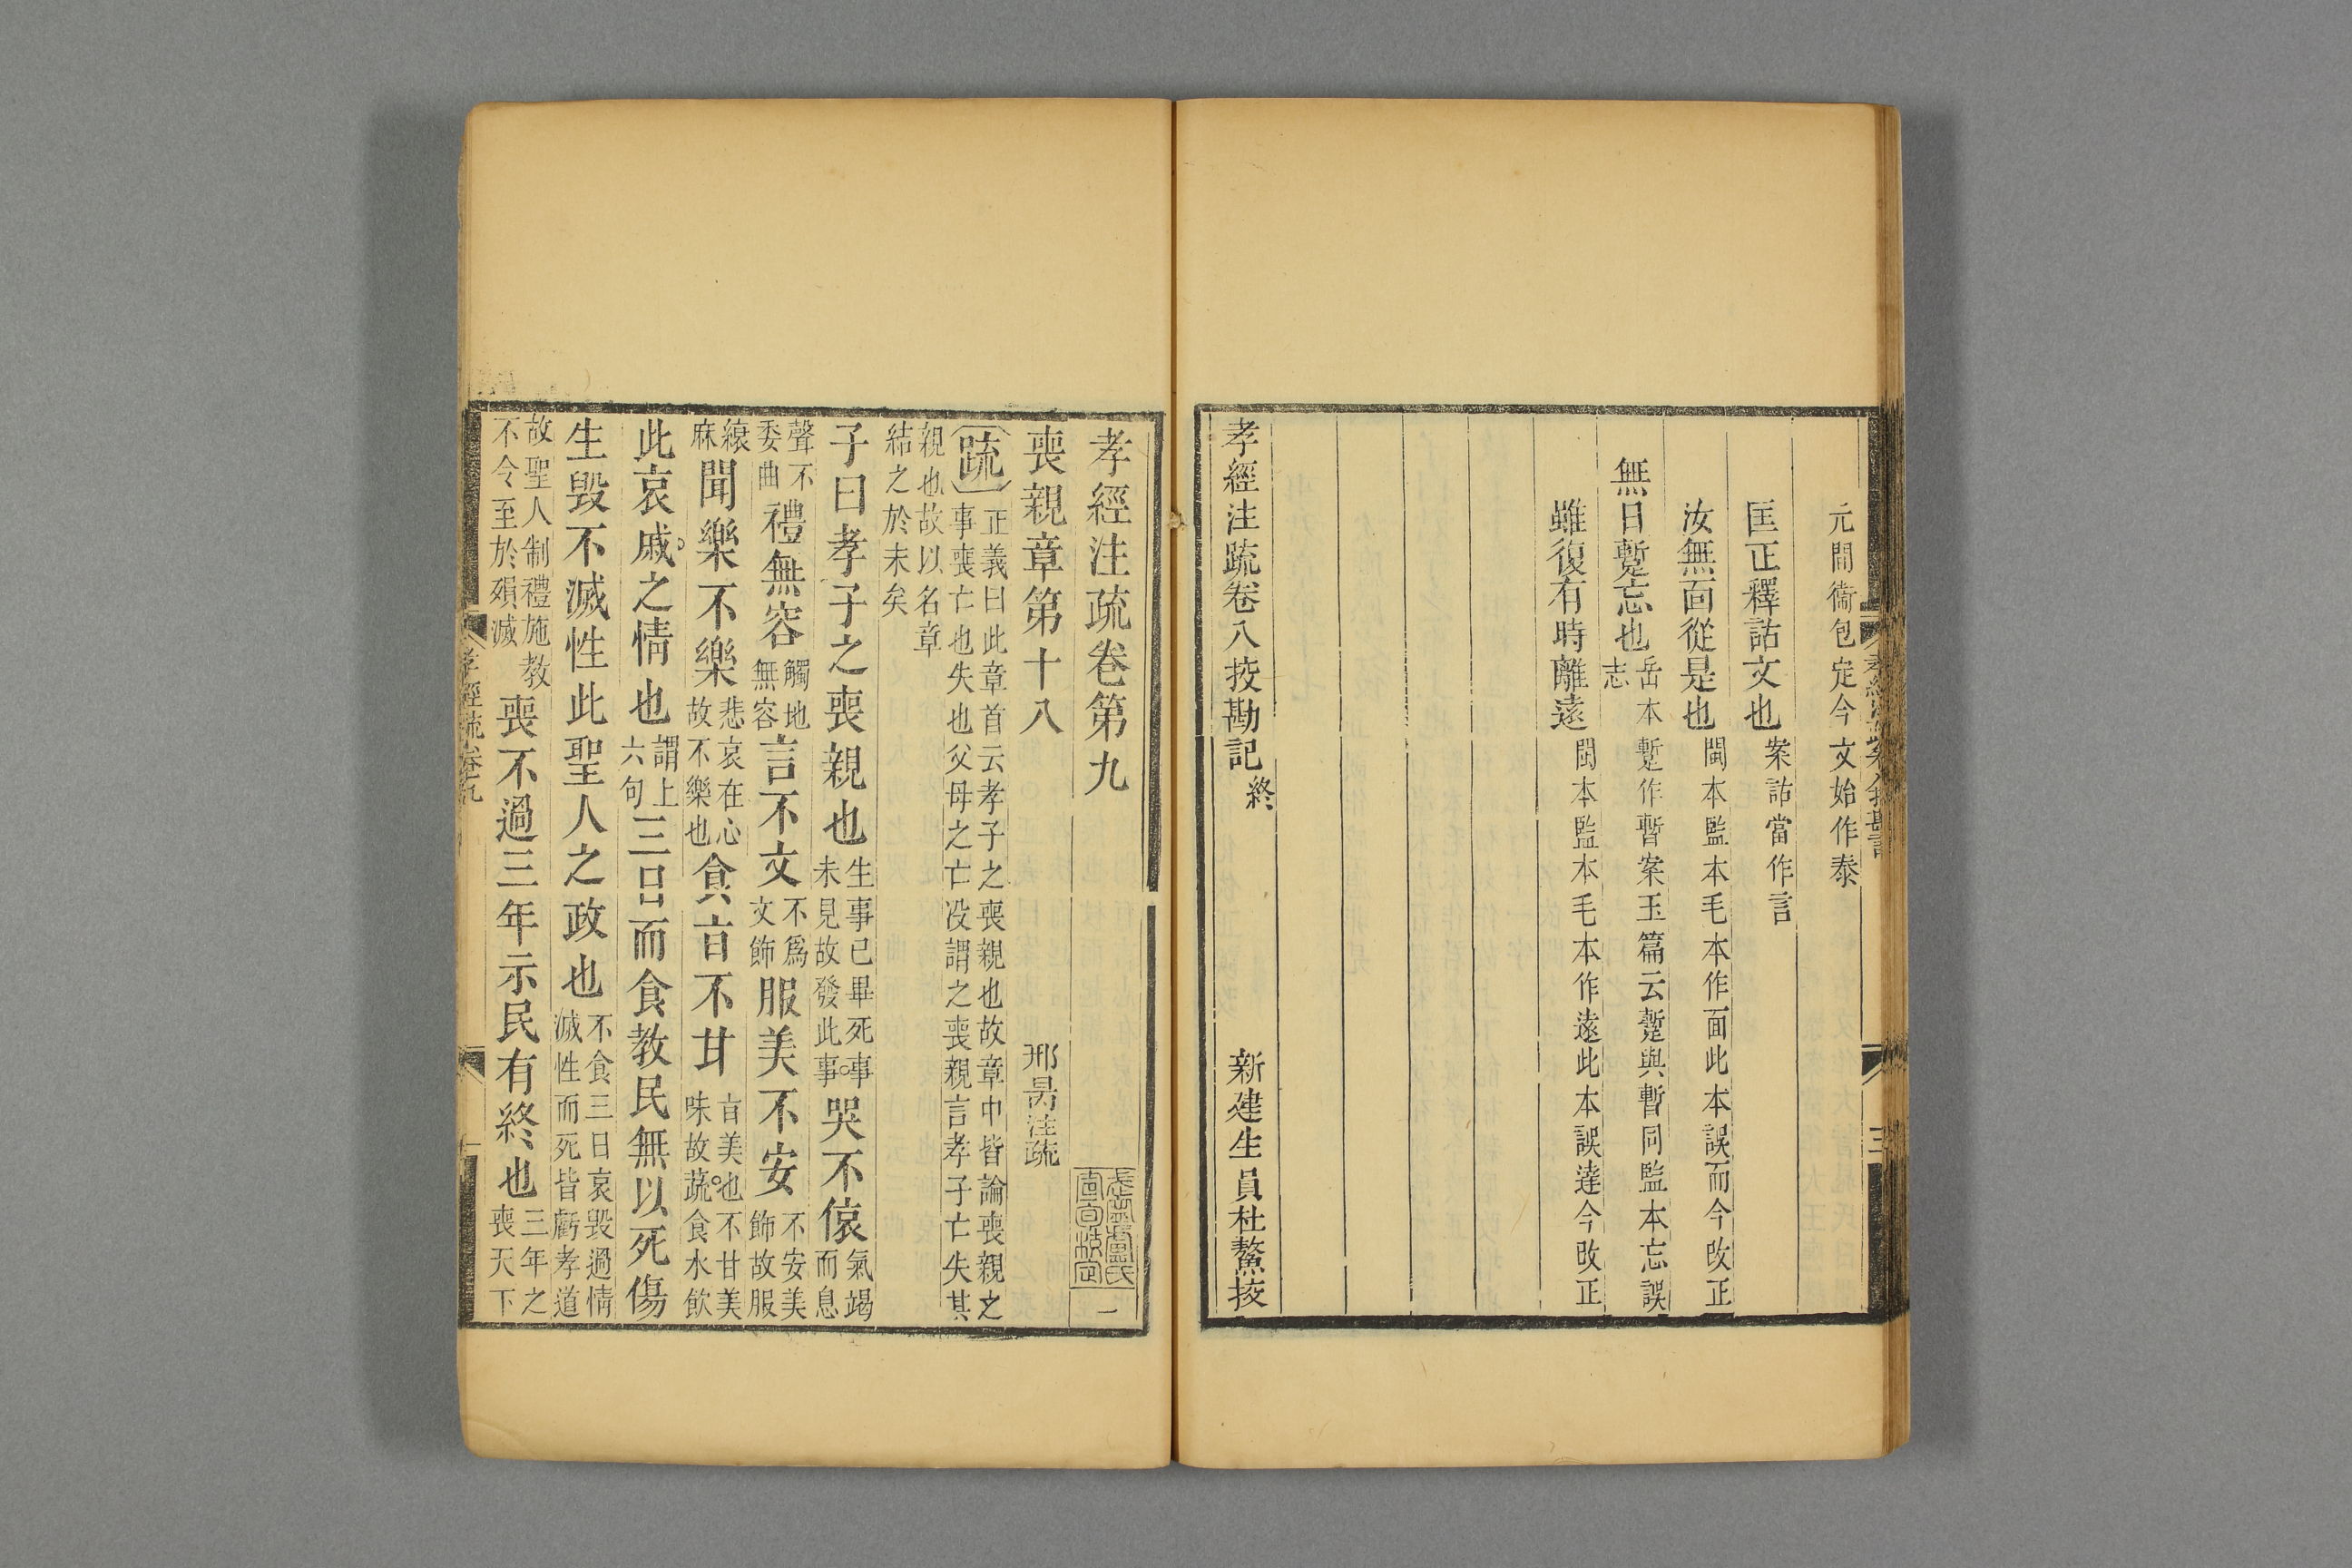 元間衞包定今文始作泰
匡正釋詁文也 案詁當作言
汝無面從是也 閩本監本毛本作面此本誤而今改正
無日蹔忘也 岳本蹔作暫案玉篇云蹔與暫同監本忘誤志
雖復有時離遠 閩本監本毛本作遠此本誤達今改正
孝經注疏卷八挍勘記 終 新建生員杜鰲挍
三
孝經注疏卷第九
喪親章第十八 邢昺注疏
疏 正義曰此章首云孝子之喪親也故章中皆論喪親之
事喪亡也失也父母之亡沒謂之喪親言孝子亡失其
親也故以名章
結之於末矣
子曰孝子之喪親也 生事已畢死事未見故發此事 哭不偯 氣竭而息
聲不委曲 禮無容 觸地無容 言不文 不爲文飾 服美不安 不安美飾故服
縗麻 聞樂不樂 悲哀在心故不樂也 食旨不甘 旨美也不甘美味故蔬食水飲
此哀戚之情也 謂上六句 三日而食教民無以死傷
生毀不滅性此聖人之政也 不食三日哀毀過情滅性而死皆虧孝道
故聖人制禮施教不令至於殞滅 喪不過三年示民有終也 三年之喪天下
孝經疏卷九
一